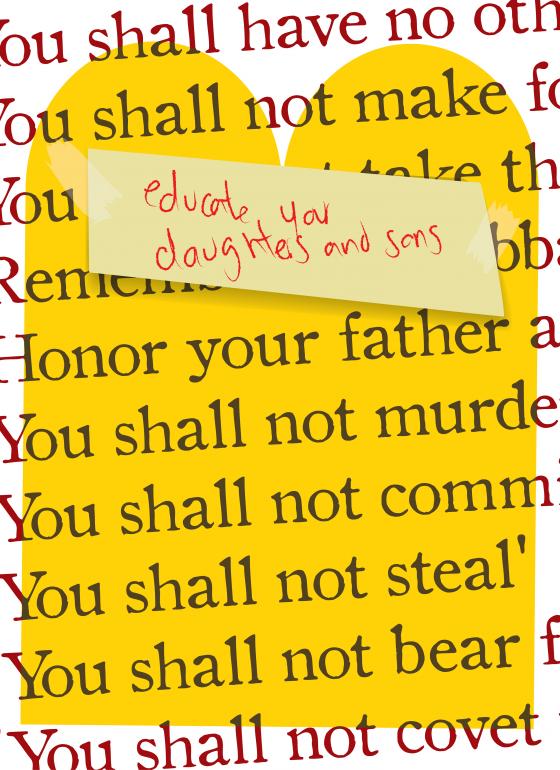 You shall have no oth
You shall not make fo
You take th
educate your
daughters and sons
Rememb bba
Honor your father a
You shall not murde
You shall not commi
You shall not steal'
You shall not bear f
You shall not covet